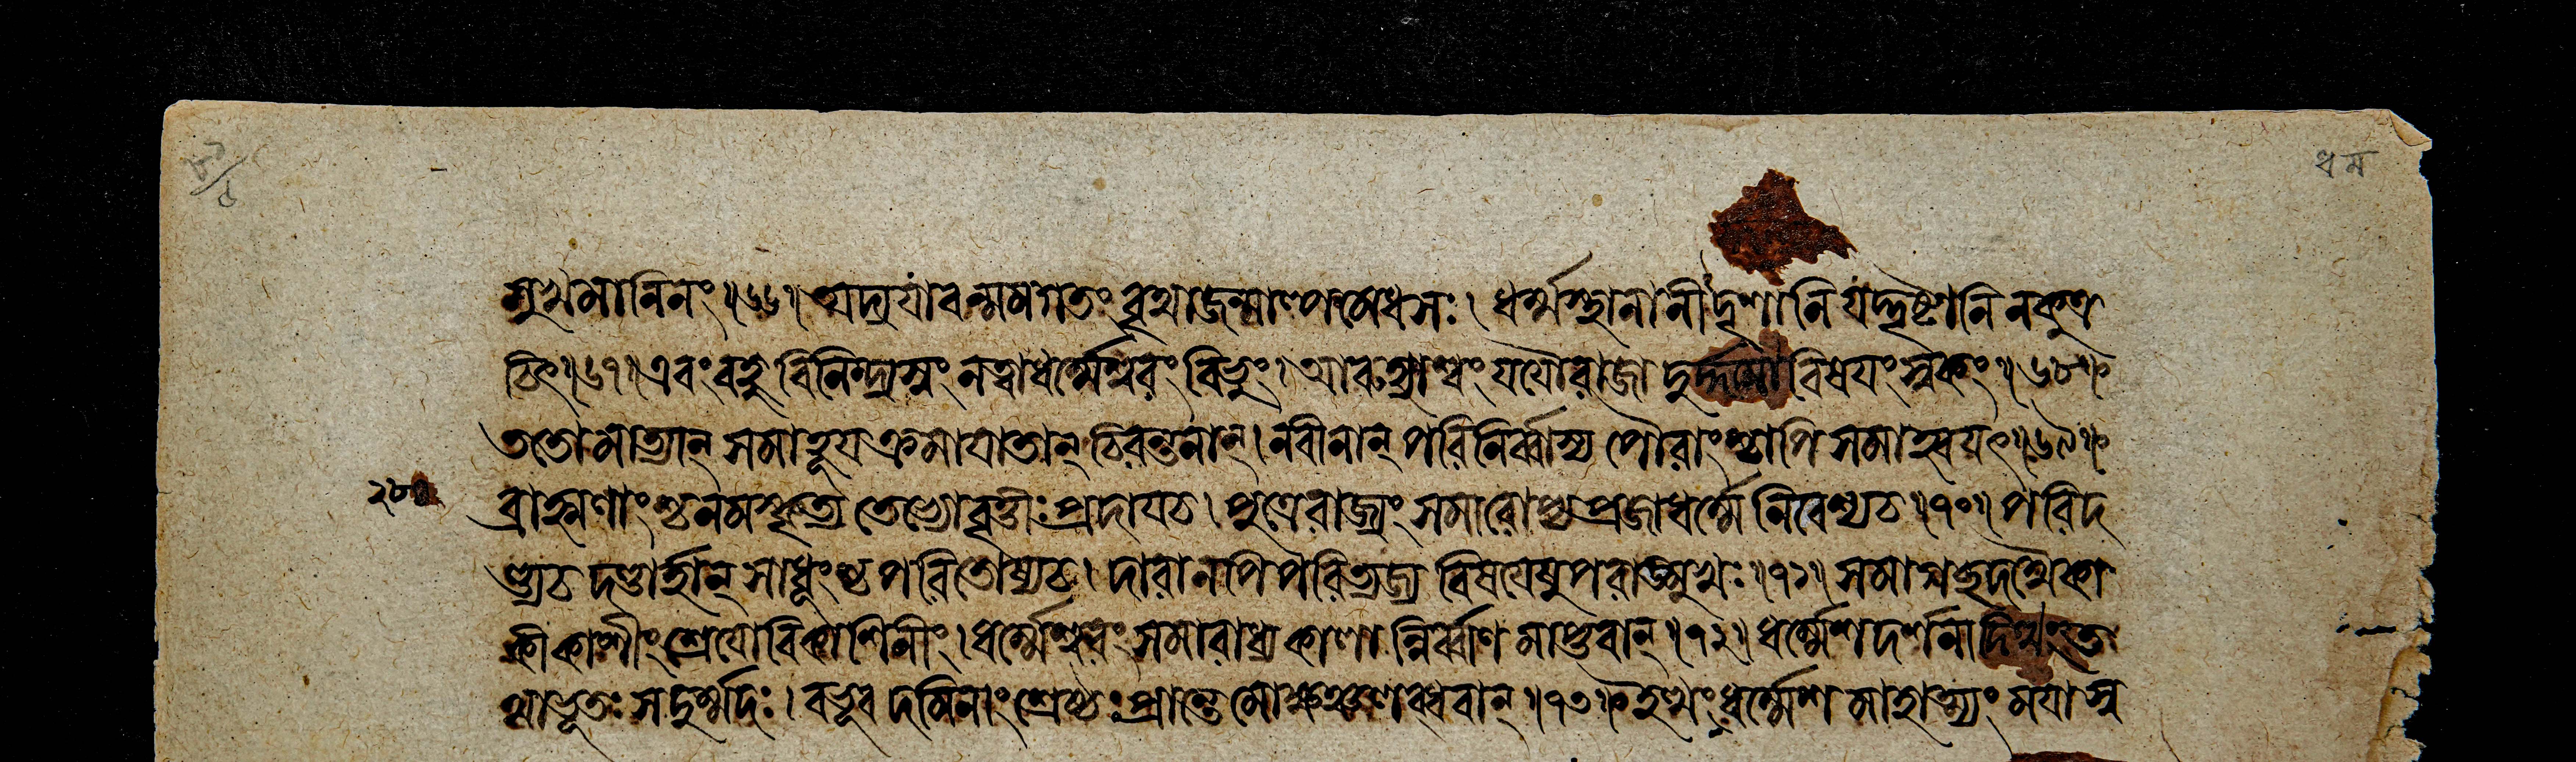 সুখমানিনং ॥৬৬॥ অদ্যযাবন্মমগতং বৃথাজন্মাল্পমেধসঃ । ধর্ম্মস্থানানীদৃশানি যদ্দৃষ্টানি নকুত্র
চিৎ ॥৬৭॥ এবং বহু বিনিন্দ্যস্বং নত্বাধর্ম্মেশ্বরং বিভুং । আরুহ্যাশ্বং যযৌরাজা দুর্দ্দমো বিষযংস্বকং ॥৬৮॥
ততোমাত্যান্ সমাহূয ক্রমাযাতান্ চিরন্তনান্ । নবীনান্ পরিনির্ব্বাস্য পৌরাংশ্চাপি সমাহ্বযৎ ॥৬৯॥
ব্রাহ্মণাংশ্চনমস্কৃত্য তেভ্যোবৃত্তীঃ প্রদাযচ । পুত্রেরাজ্যং সমারোপ্য প্রজাধর্ম্মে নিবেশ্যচ ॥৭০॥ পরিদ
ণ্ড্যচ দণ্ডার্হান্ সাধূংশ্চ পরিতোষ্যচ । দারানপি পরিত্যজ্য বিষযেষুপরাঙ্মুখঃ ॥৭১॥ সমাগচ্ছদথৈকা
কীকাশীং শ্রেযোবিকাশিনীং । ধর্ম্মেশ্বরং সমারাধ্য কালান্নির্ব্বাণ মাপ্তবান্ ॥৭২॥ ধর্ম্মেশদর্শনাদিত্থং ত
থাভূতঃ সদুর্দ্দমঃ । বভূব দমিনাং শ্রেষ্ঠঃ প্রান্তে মোক্ষঞ্চলব্ধবান্ ॥৭৩॥ ইত্থং ধর্ম্মেশ মাহাত্ম্যং মযা স্ব
धम